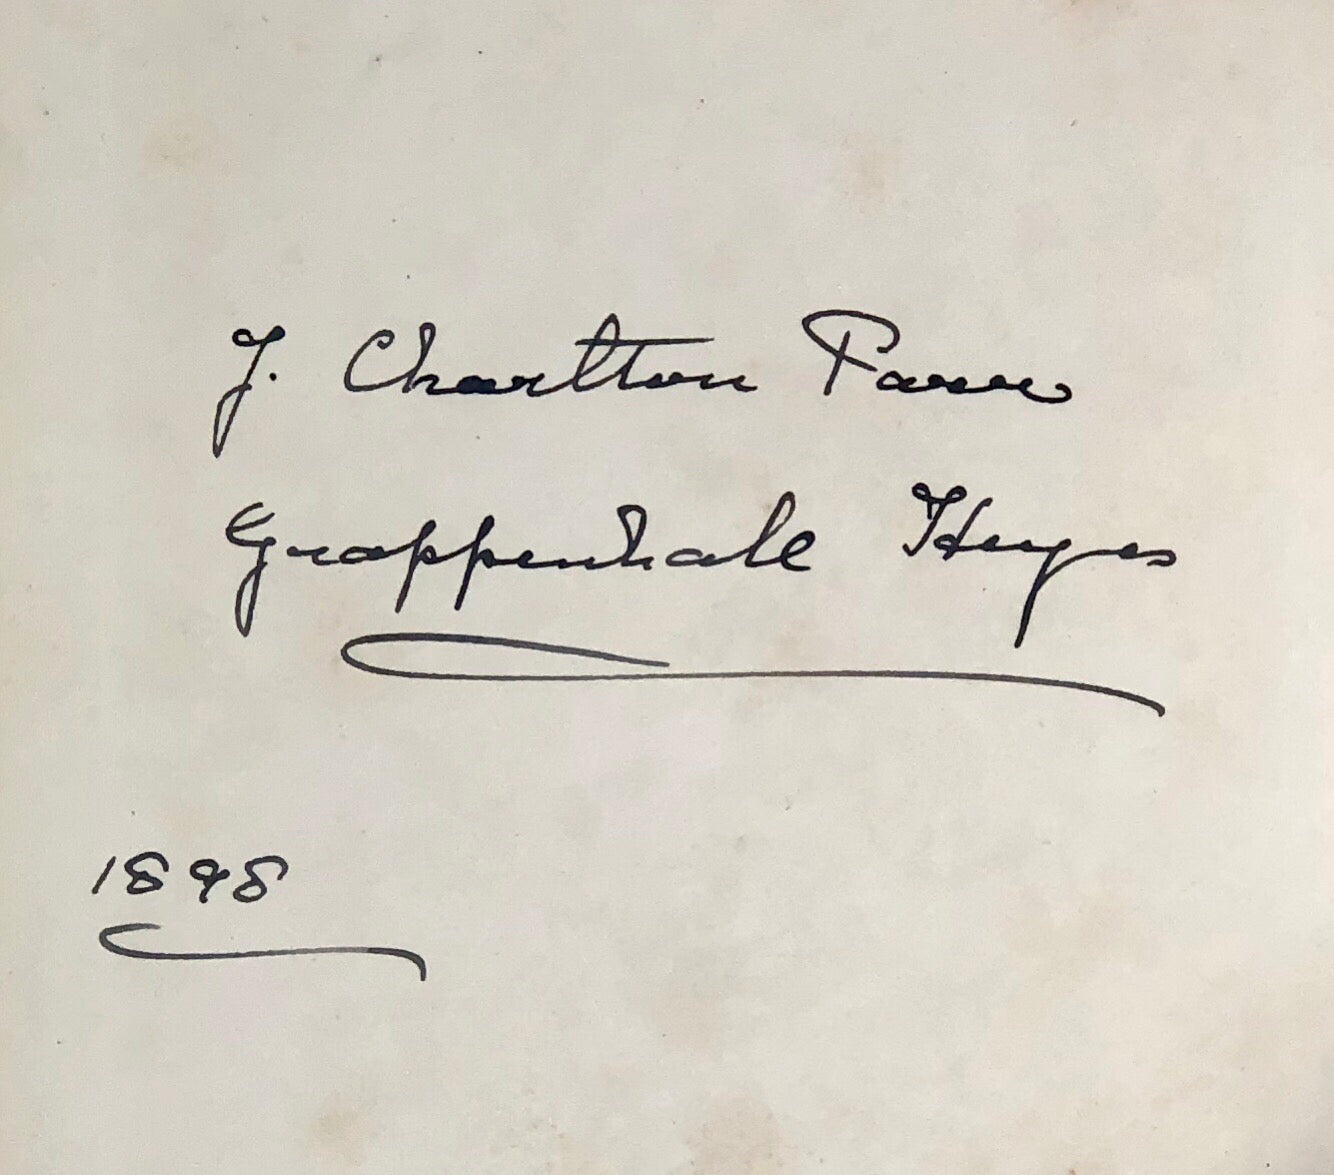 J. Charlton Parr
Grappenhall Heyes
1898